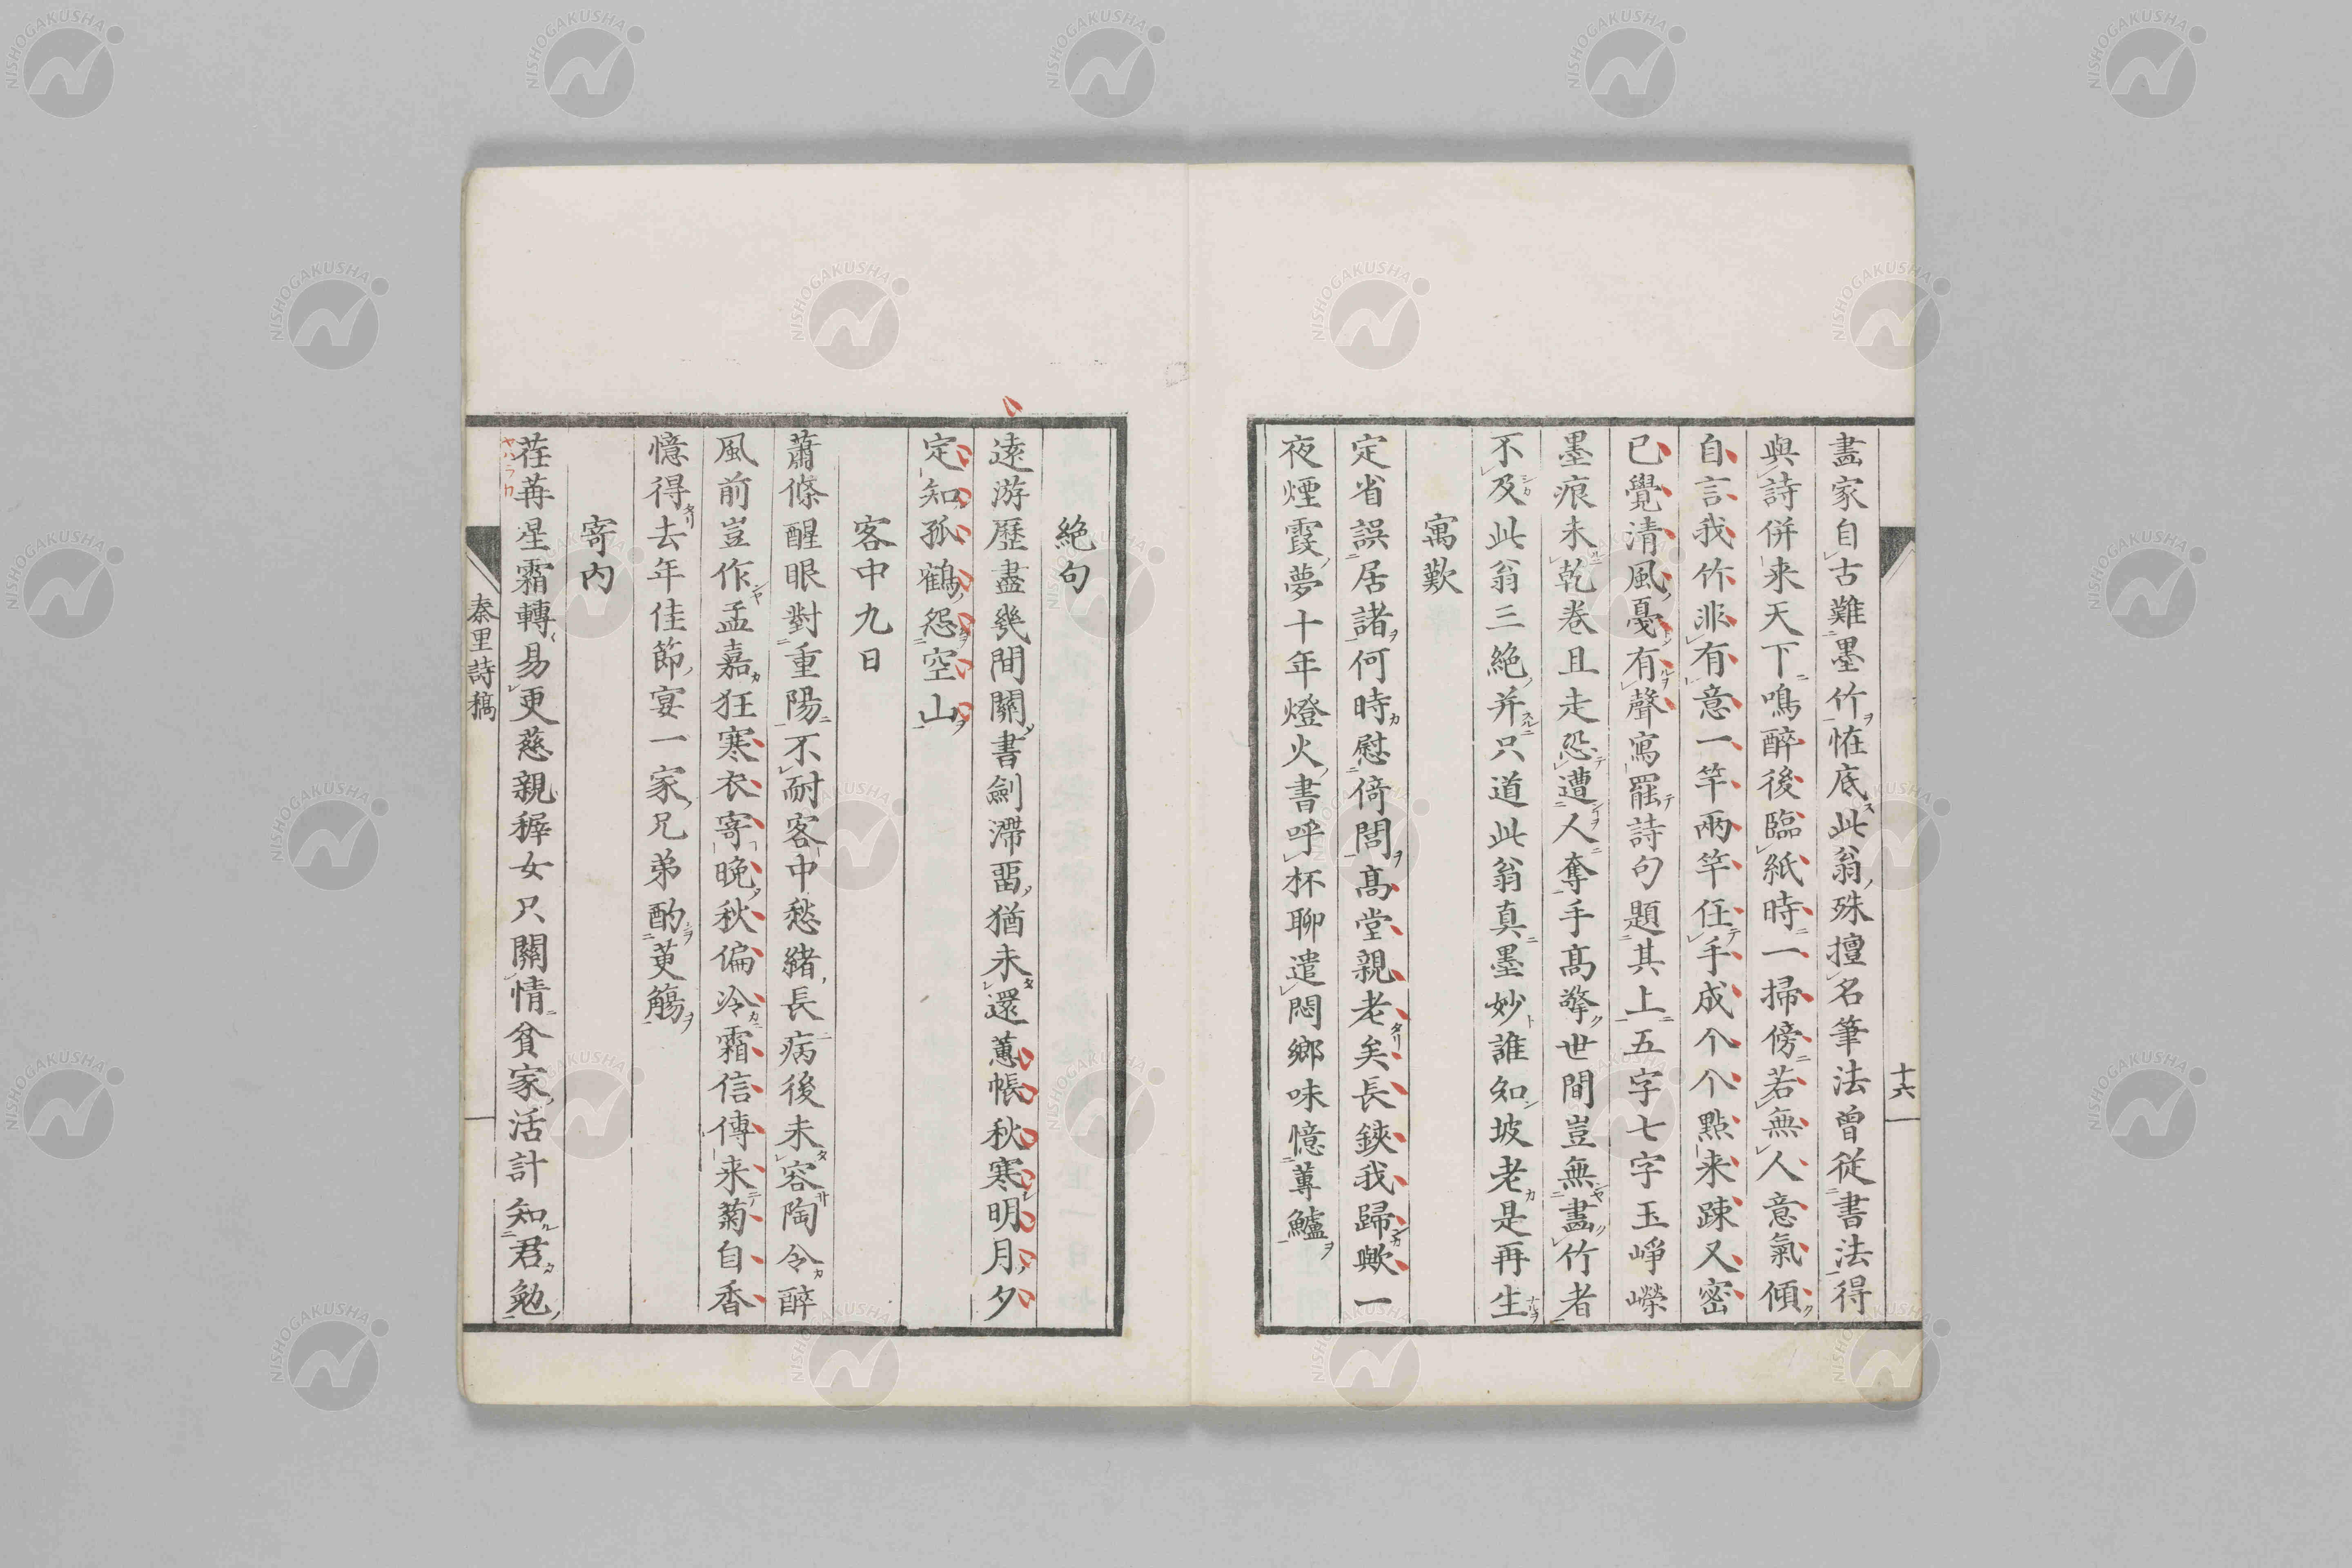 畫家自古難墨竹恠底此翁殊擅名筆法曾從書法得
與詩併来天下鳴醉後臨紙時一掃傍若無人意氣傾
自言我竹非有意一竿兩竿任手成个个點来踈又密
已覺清風戞有聲寫罷詩句題其上五字七字玉崢嶸
墨痕未乾卷且走恐遭人奪手高擎世間豈無畫竹者
不及此翁三絶并只道此翁真墨妙誰知坡老是再生
寓歎
定省誤居諸何時慰倚閭高堂親老矣長鋏我歸歟一
夜煙霞夢十年燈火書呼杯聊遣悶鄉味憶蓴鱸
十六
絶句
遠游歷盡幾間關書劍滯畱猶未還蕙帳秋寒明月夕
定知孤鶴怨空山
客中九日
蕭條醒眼對重陽不耐客中愁緒長病後未容陶令醉
風前豈作孟嘉狂寒衣寄晚秋偏冷霜信傳来菊自香
憶得去年佳節宴一家兄弟酌萸觴
寄内
荏苒星霜轉易更慈親穉女只關情貧家活計知君勉
ヤハラカ
秦里詩稿
NISHOGAKUSHA